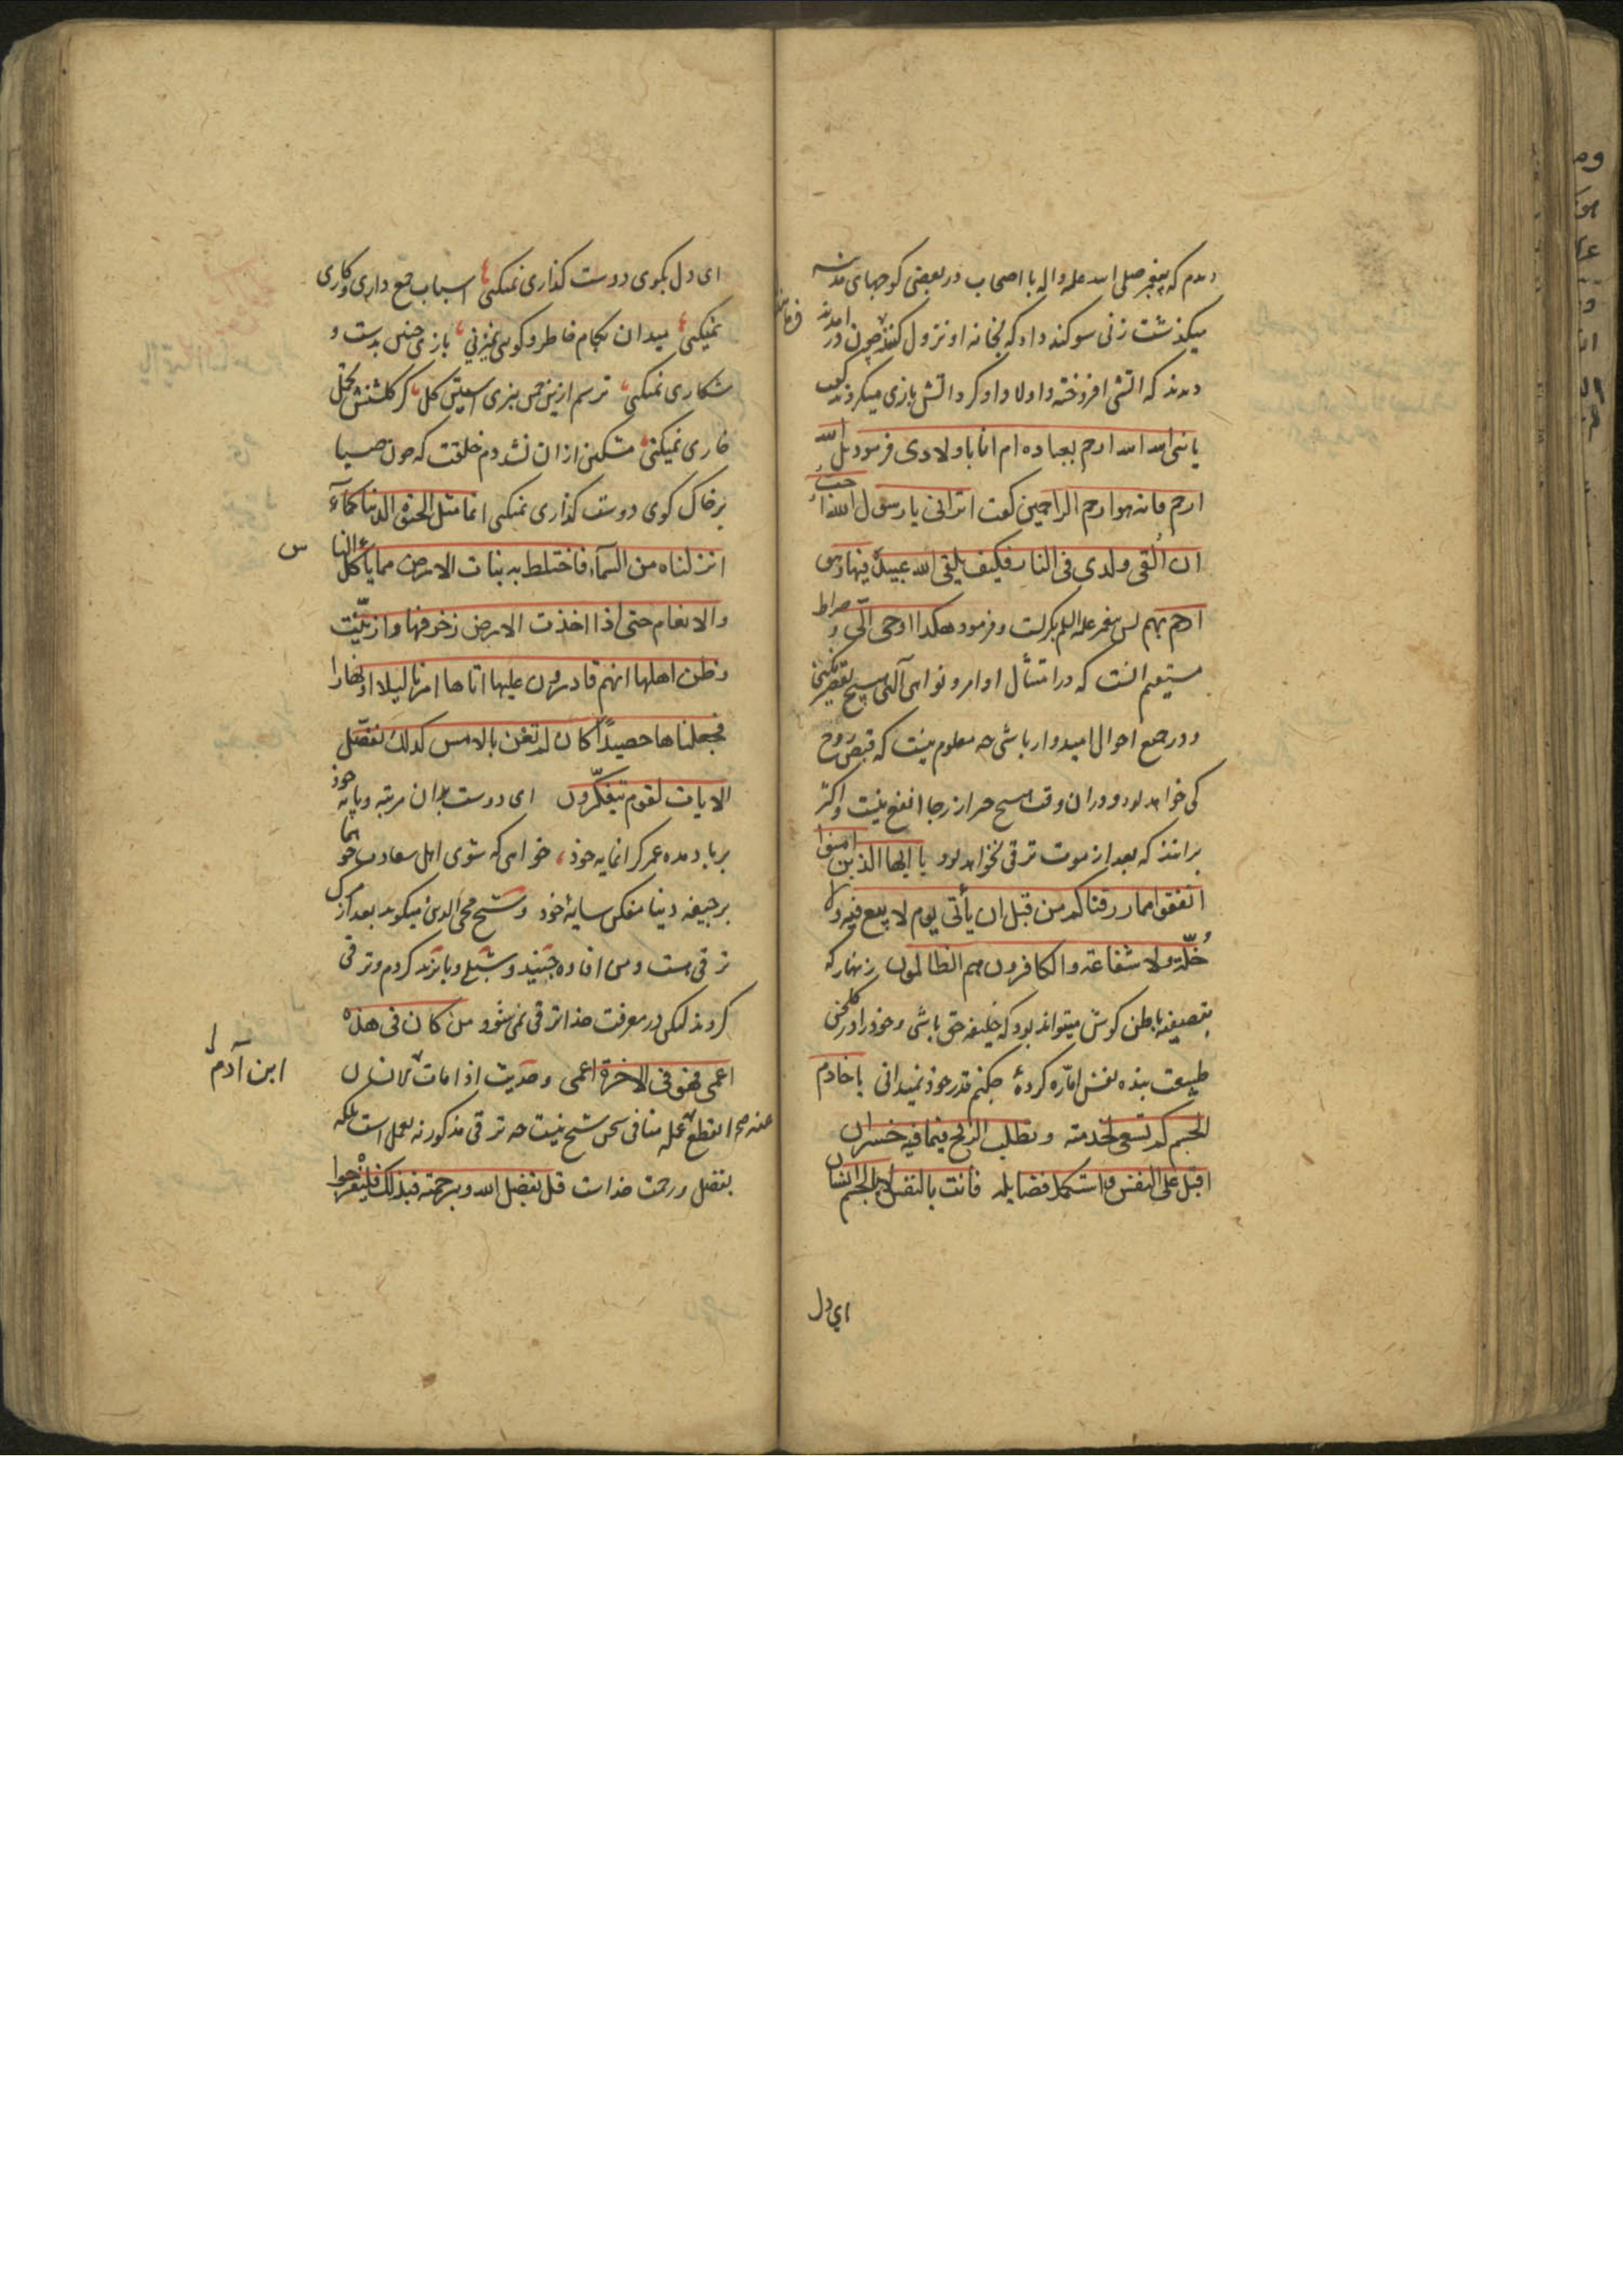 دیدم که پیغمبر صلی الله علیه واله با اصحاب در بعضی کوچهای مدینه
میگذشت زنی سوکند داد که بخانه او نزول کنند چون در امدند
دیدند که اتشی افروخته و اولاد او کرد اتش بازی میکردند گفت
یا نبی الله الله ارحم بعباده ام انا باولادی فرمود بل الله
ارحم فانه هو ارحم الراحمین کفت اترانی یا رسول الله احب
ان القی ولدی فی النار فکیف یلقی الله عبیده فیها وهو
ارحم بهم پس پیغمبر علیه السلم بکریست و فرمود هکذا اوحی الّی و صراط
مستقیم انست که در امتثال اوامر و نواهی آلهی هیچ تقصیر نکنی
و در جمیع احوال امیدوار باشی چه معلوم نیست که قبض روح
کی خواهد بود و در ان وقت هیچ چیز از رجا انفع نیست و اکثر
برانند که بعد از موت ترقی نخواهد بود یا ایها الذین امنوا
انفقوا مما رزقناکم من قبل ان یأتی یوم لا بیع فیه ولا
خُلّة ولا شفاعة والکافرون هم الظالمون زنهار که
بتصفیه باطن کوش میتواند بود که خلیفه حق باشی و خود را در گلخن
طبیعت بنده نفس امّاره کردهٔ چکنم قدر خود نمیدانی یا خادم
الجسم کم تسعی لخدمته وتطلب الربح فیما فیه خسران
اقبل علی النفس واستکمل فضایلها فانت بالنفس لا بالجسم انسان
ای دل
ای دل بکوی دوست کذاری نمیکنی اسباب جمع داری و کاری
نمیکنی میدان بکام خاطر و کویی نمیزنی بازی چنین بدست و
شکاری نمیکنی ترسم ازین چمن نبری آستین کل کز گلشنش تحمل
خاری نمیکنی مشکین ازان نشد دم خلقت که چون صبا
بر خاک کوی دوست کذاری نمیکنی انما مثل الحیوة الدنیا کماء
انزلناه من السمآء فاختلط به نبات الارض مما یأکل الناس
والانعام حتی اذا اخذت الارض زخرفها وازیّنت
وظن اهلها انهم قادرون علیها اتاها امرنا لیلا او نهارا
فجعلناها حصیداً کان لم تغن بالامس کذلک نفصّل
الایات لقوم یتفکّرون ای دوست بدان مرتبه و پایه خود
بر باد مده عمر گرانمایه خود خواهی که شوی اهل سعادت چو هما
بر جیفه دنیا مفکن سایهٔ خود و شیخ محی الدین میکوید بعد از مرک
ترقی هست و من افاده جنید و شبلی و بایزید کردم و ترقی
کردند لیکن در معرفت خدا ترقی نمی شود من کان فی هذه
اعمی فهو فی الاخرة اعمی و حدیث اذا مات الانسان
ابن آدم
انقطع عمله منافی سخن شیخ نیست چه ترقی مذکور نه بعمل است بلکه
بفضل و رحمت خداست قل بفضل الله وبرحمته فبذلک فلیفرحوا